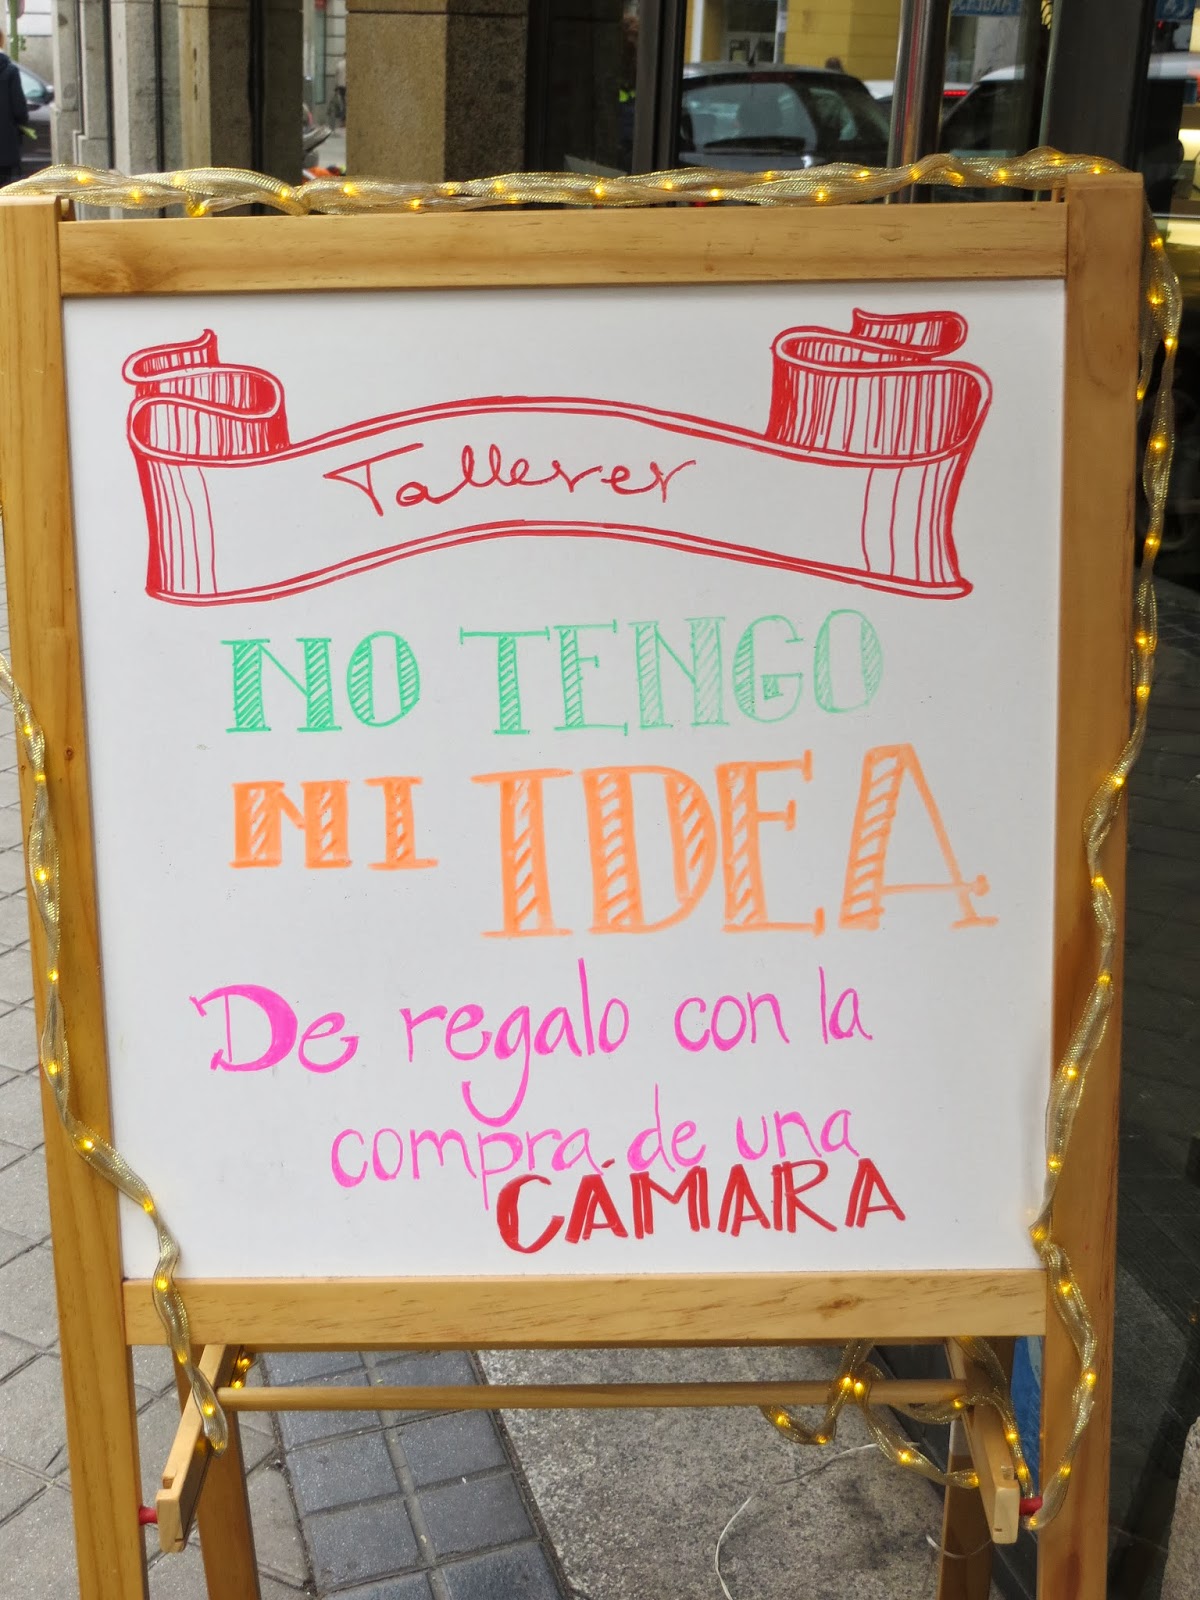 Talleres
NO TENGO
NI IDEA
De regalo con la
compra de una
CÁMARA